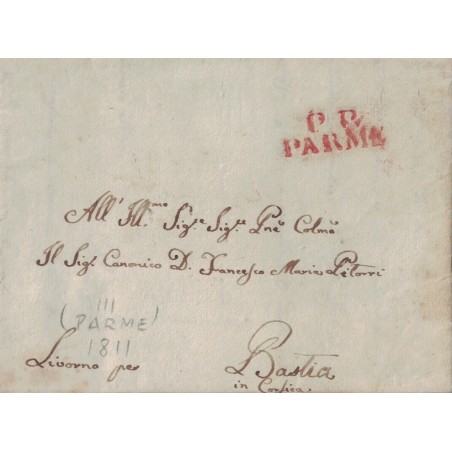 P. P.
PARME
All' Ill.mo Sig.e Sig.e Pne Colmo
Il Sig.e Canonico D. Francesco Maria Pitorri
111
(PARME)
1811
Livorno per Bastia
in Corsica